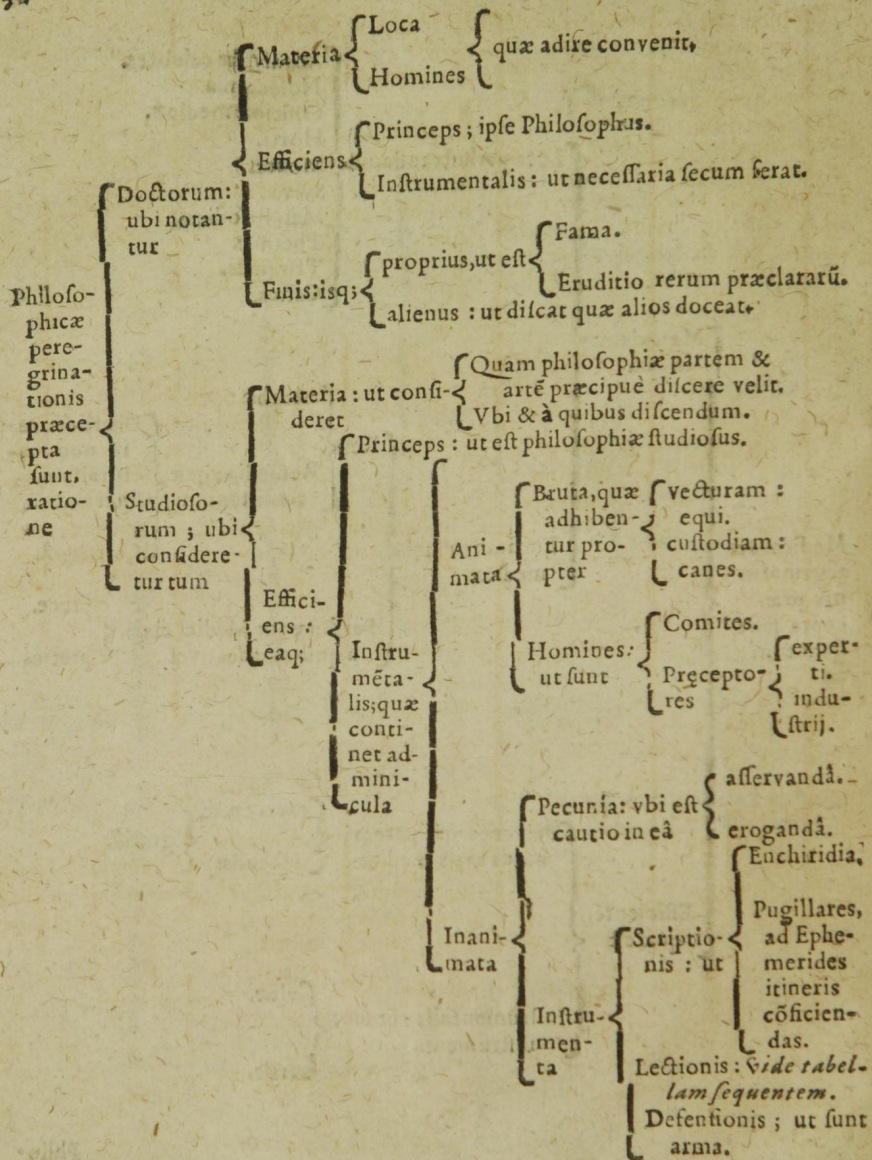 Philoso-
phicæ
pere-
grina-
tionis
præce-
pta
sunt,
ratio-
ne
Doctorum:
ubi notan-
tur
Materia
Loca
Homines
quæ adire convenit,
Efficiens
Princeps; ipse Philosophus.
Instrumentalis: ut necessaria secum ferat.
Finis: isq;
proprius, ut est
Fama.
Eruditio rerum præclararū.
alienus : ut discat quæ alios doceat,
Studioso-
rum ; ubi
considere-
tur tum
Materia : ut consi-
deret
Quam philosophiæ partem &
artē præcipuè discere velit.
Vbi & à quibus discendum.
Effici-
ens :
eaq;
Princeps : ut est philosophiæ studiosus.
Instru-
mēta-
lis; quæ
conti-
net ad-
mini-
cula
Ani -
mata
Bruta, quæ
adhiben-
tur pro-
pter
vecturam :
equi.
custodiam :
canes.
Homines:
ut sunt
Comites.
Pręcepto-
res
exper-
ti.
indu-
strij.
Inani-
mata
Pecunia: vbi est
cautio in eâ
asservandâ.
erogandâ.
Instru-
men-
ta
Scriptio-
nis : ut
Enchiridia,
Pugillares,
ad Ephe-
merides
itineris
cōficien-
das.
Lectionis : vide tabel-
lam sequentem.
Defensionis ; ut sunt
arma.